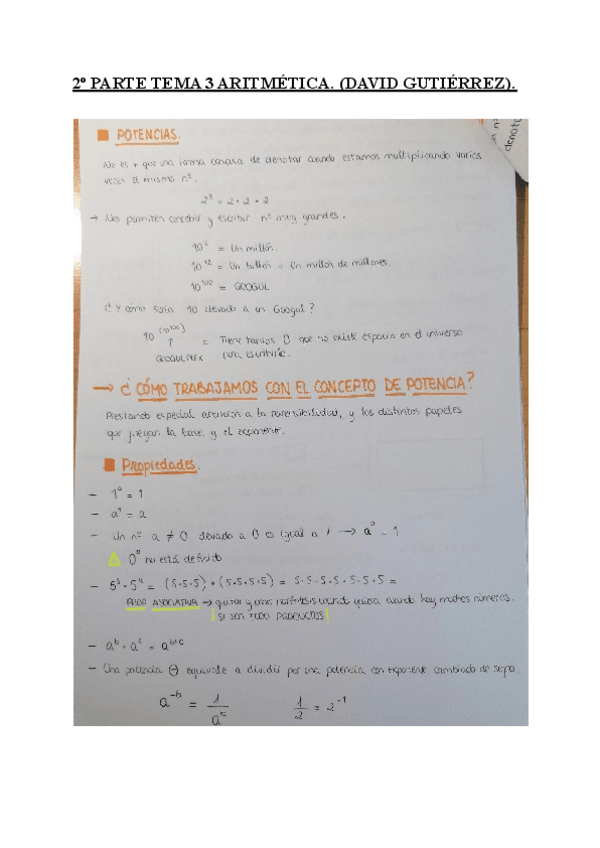 2º PARTE TEMA 3 ARITMÉTICA. (DAVID GUTIÉRREZ).
denota
POTENCIAS.
No es + que una forma concisa de denotar cuando estamos multiplicando varias
veces el mismo nº.
= 2 · 2 · 2
→ Nos permiten concebir y escribir nº muy grandes.
= Un millón.
10¹² = Un billón = Un millón de millones.
10¹⁰⁰ = GOOGOL
¿Y cómo sería 10 elevado a un Googol?
10^(10¹⁰⁰) = Tiene tantos 0 que no existe espacio en el universo
↑
GOOGOLPLEX para escribirlo.
→ ¿CÓMO TRABAJAMOS CON EL CONCEPTO DE POTENCIA?
Prestando especial atención a la reversibilidad, y los distintos papeles
que juegan la base y el exponente.
Propiedades.
- 1ᵃ = 1
- a¹ = a
- Un nº a ≠ 0 elevado a 0 es igual a 1 → a⁰ = 1
0⁰ no está definido
- 5³ · 5⁴ = (5·5·5) · (5·5·5·5) = 5·5·5·5·5·5·5 =
PROP ASOCIATIVA → quitar y poner paréntesis cuando quiera cuando hay muchos números.
SI SON TODO PRODUCTOS
- aᵇ · aᶜ = aᵇ⁺ᶜ
- Una potencia (-) equivale a dividir por una potencia con exponente cambiado de signo.
a⁻ᵇ = 1/a 1/2 = 2⁻¹